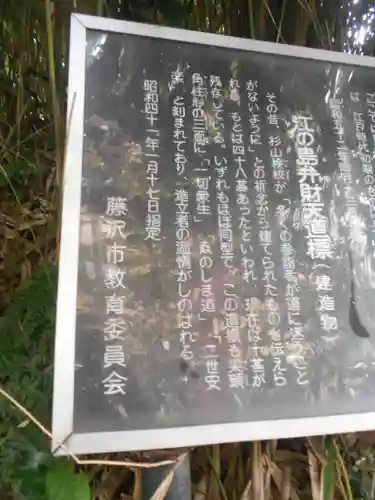 江の島弁財天道標（建造物）
その昔、杉山検校が「多くの参詣者が道に迷うこと
がないように」との祈念から建てられたものと伝えら
れる。もとは四十八基あったといわれ、現在は十基が
残存している。いずれもほぼ同型で、この道標も尖頭
角柱形の三面に「一切衆生」「ゑのしま道」「二世安
楽」と刻まれており、造立者の温情がしのばれる。
昭和四十一年一月十七日指定
藤沢市教育委員会